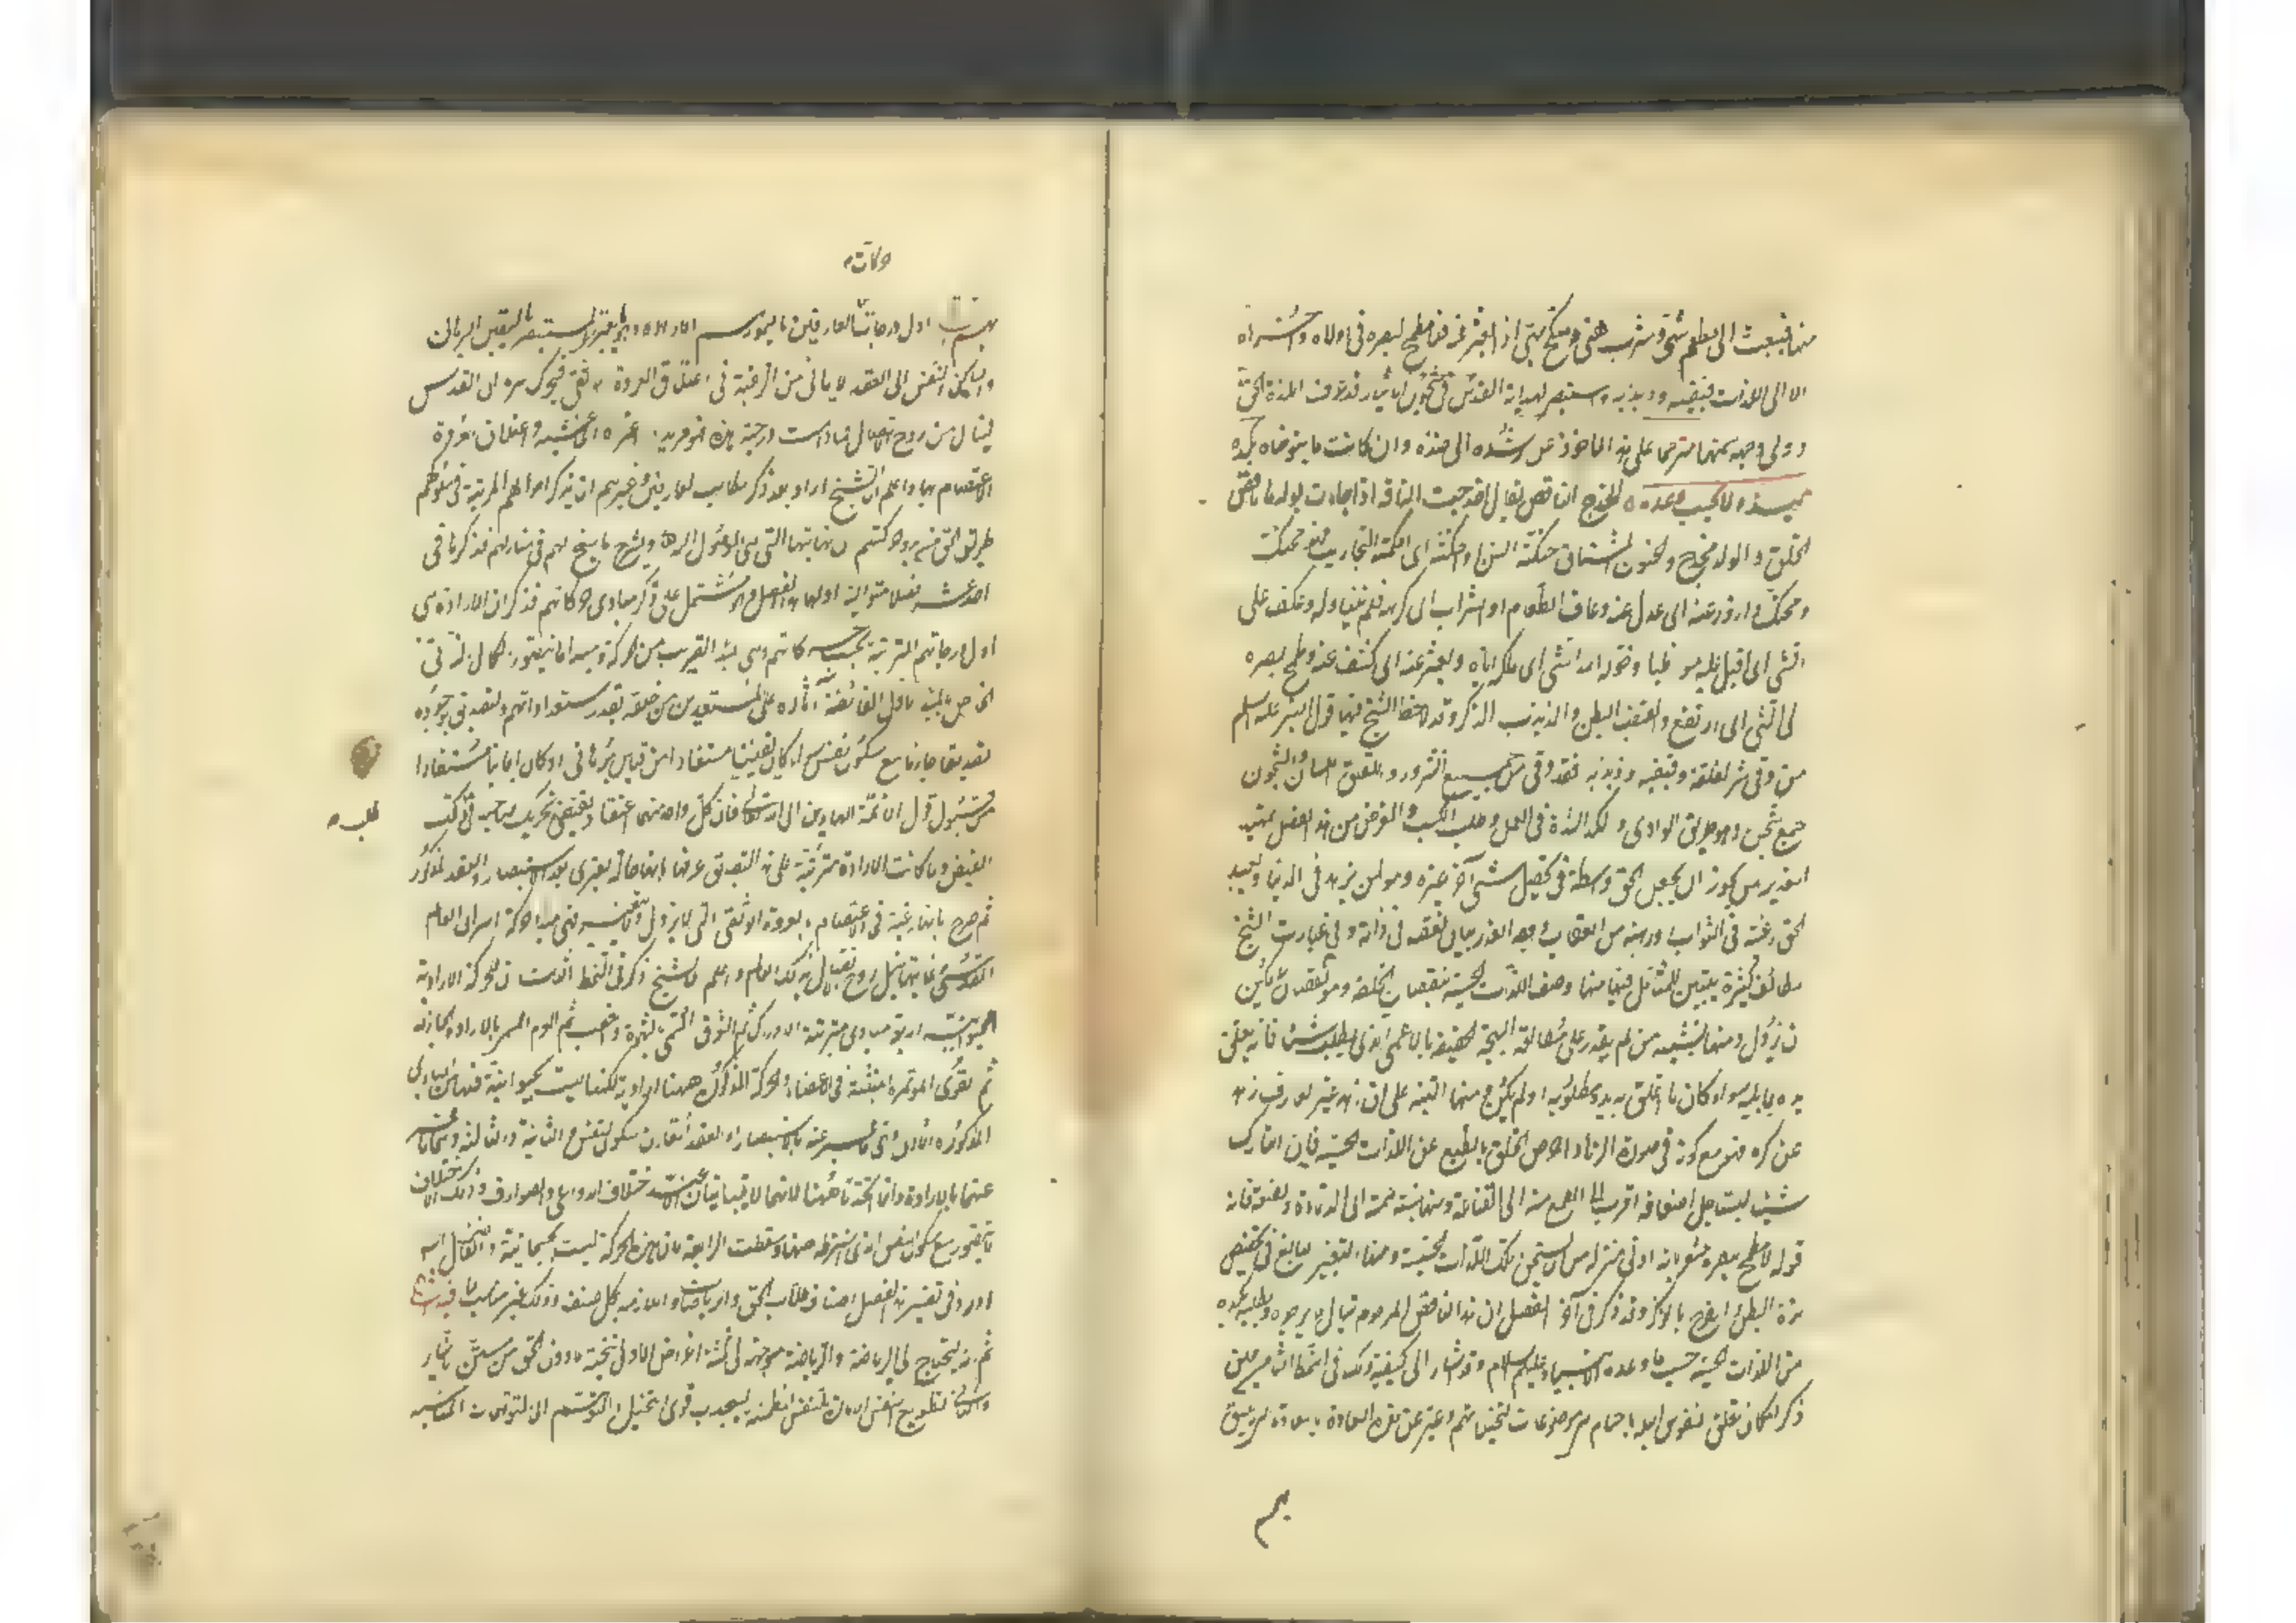 منها فتبعث الى مطعم شهى ومشرب هنى ومنكح بهى اذا بعثر عنه فلا مطمح لبصره فى اولاه واخراه
الا الى لذات قبقبه وذبذبه والمستبصر بهداية القدس فى شجون الايثار قد عرف اللذة الحق
وولى وجهه سمتها مترحما على هذا الماخوذ عن رشده الى ضده وان كان ما يتوخاه بكده
مبذولا له بحسب وعده المخدج الناقص يقال اخدجت الناقة اذا جاءت بولدها ناقص
الخلق والولد مخدج والحنون المشتاق حنكته السن واحنكته اى احكمته التجاريب فهو محنك
ومحنك وازور عنه اى عدل عنه وعاف الطعام او الشراب اى كرهه فلم يتناوله وعكف على
الشى اى اقبل عليه مواظبا وخوله الله الشى اى ملكه اياه وبعثر عنه اى كشف عنه وطمح بصره
الى الشى اى ارتفع والقبقب البطن والذبذب الذكر وقد لاحظ الشيخ فيهما قول النبى عليه السلام
من وقى شر لقلقه وقبقبه وذبذبه فقد وقى من جميع الشرور واللقلق اللسان والشجون
جمع شجن وهو طريق الوادى والكد الشدة فى العمل وطلب الكسب والغرض من هذا الفصل تمهيد
العذر لمن يجوز ان يجعل الحق واسطة فى تحصيل شى آخر غيره وهو من يزهد فى الدنيا ويعبد
الحق رغبة فى الثواب او رهبة من العقاب ووجه العذر بيان نقصه فى ذاته وفى عبارات الشيخ
لطائف كثيرة يتبين للمتأمل فيها منها وصف اللذات الحسية بنقصان الخلقة وهو نقصان لا يمكن
ان يزول ومنها تشبيه من لم يقدر على مطالعة البهجة الحقيقية بالاعمى الذى يطلب شيئا فانه يعلق
يده بما يليه سواء كان ما اعلق به يده مطلوبه او لم يكن ومنها التنبيه على ان زهد غير العارف زهد
عن كره فهو مع كونه فى صورة الزهاد احرص الخلق بالطبع على اللذات الحسية فان التارك
شيئا ليستاجل اضعافه اقرب الى الطمع منه الى القناعة ومنها نسبة همته الى الدناءة والضعة فانه
قوله لا مطمح لبصره مشعر بانه ادنى منزلة من ان يستحق تلك اللذات الحسية ومنها التعبير البالغ فى تخصيص
لذة البطن والفرج بالذكر وقد ذكر فى آخر الفصل ان هذا الناقص المرحوم ينال ما يرجوه ويطلبه بكده
من اللذات الحسية حسب ما وعده الانبياء عليهم السلام وقد اشار الى كيفية ذلك فى النمط الثامن حين
ذكر امكان تعلق نفوس البله باجسام هى موضوعات لتخيلاتهم وعبر عن هذه السعادة بالسعادة التى تليق
بهم
حركات
بهم اول درجات العارفين ما يسمونه هم الارادة وهو ما يعترى المستبصر باليقين البرهانى
او الساكن النفس الى العقد الايمانى من الرغبة فى اعتلاق العروة الوثقى فيتحرك سره الى القدس
لينال من روح الاتصال فما دامت درجته هذه فهو مريد اعتراه اى غشيه والاعتلاق
الاعتصام بها واعلم ان الشيخ اراد بعد ذكر مطالب العارفين وغيرهم ان يذكر احوالهم المرتبة فى سلوكهم
طريق الحق من بدو حركتهم الى نهايتها التى هى الوصول الى الله ويشرح ما يسنح لهم فى منازلهم فذكرها فى
احد عشر فصلا متوالية اولها هذا الفصل وهو مشتمل على ذكر مبادى حركاتهم فذكر ان الارادة هى
اول درجاتهم المترتبة بحسب حركاتهم وهى المبدأ القريب من الحركة ومبدأها تصور الكمال الذاتى
الخاص بالمبدأ الاول الفائضة آثاره على المستعدين من خلقه بقدر استعداداتهم والتصديق بوجوده
تصديقا جازما مع سكون نفس سواء كان يقينيا مستفادا من قياس برهانى او كان ايمانيا مستفادا
من قبول قول الائمة الهادين الى الله تعالى فان كل واحد منهما اعتقاد يقتضى تحريك صاحبه فى طلب
طلب
الفيض ولما كانت الارادة مترتبة على هذا التصديق عرفها بانها حالة تعترى بعد الاستبصار والعقد المذكور
ثم صرح بانها رغبة فى الاعتصام بالعروة الوثقى التى لا يزول ولا يتغير فهى مبدأ حركة السر الى العالم
القدسى غايتها نيل روح الاتصال بذلك العالم واعلم ان الشيخ ذكر فى النمط الثالث ان للحركة الارادية
الحيوانية اربعة مبادى مترتبة الادراك ثم الشوق المسمى بالشهوة والغضب ثم العزم المسمى بالارادة الجازمة
ثم القوى المؤتمرة المنبثة فى الاعضاء والحركة المذكورة ههنا ارادية لكنها ليست بحيوانية فلها من المبادى
المذكورة الاول وهى ما عبر عنه بالاستبصار والعقد المقارن لسكون النفس والثانية والثالثة وهما ما عبر
عنهما بالارادة وانما اتحدتا ههنا لانهما لا يتباينان الا عند اختلاف الدواعى والصوارف وذلك الاختلاف
لا يتصور مع سكون النفس الذى اشترطه ههنا وسقطت الرابعة لان هذه الحركة ليست بجسمانية والفاضل الشارح
اورد فى تفسير هذا الفصل اصناف طلاب الحق والرياضات اللازمة بكل صنف وذلك غير مناسب لما فيه اشارة
ثم انه ليحتاج الى الرياضة والرياضة موجهة الى ثلثة اغراض الاول تنحية ما دون الحق عن مستن الايثار
والثانى تطويع النفس الامارة للنفس المطمئنة لينجذب قوى التخيل والتوهم الى التوهمات المناسبة